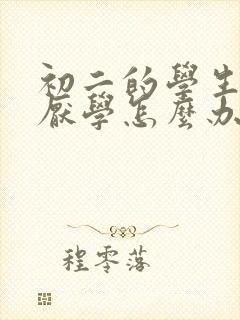 初二的學生
厭學怎麼办
程零落